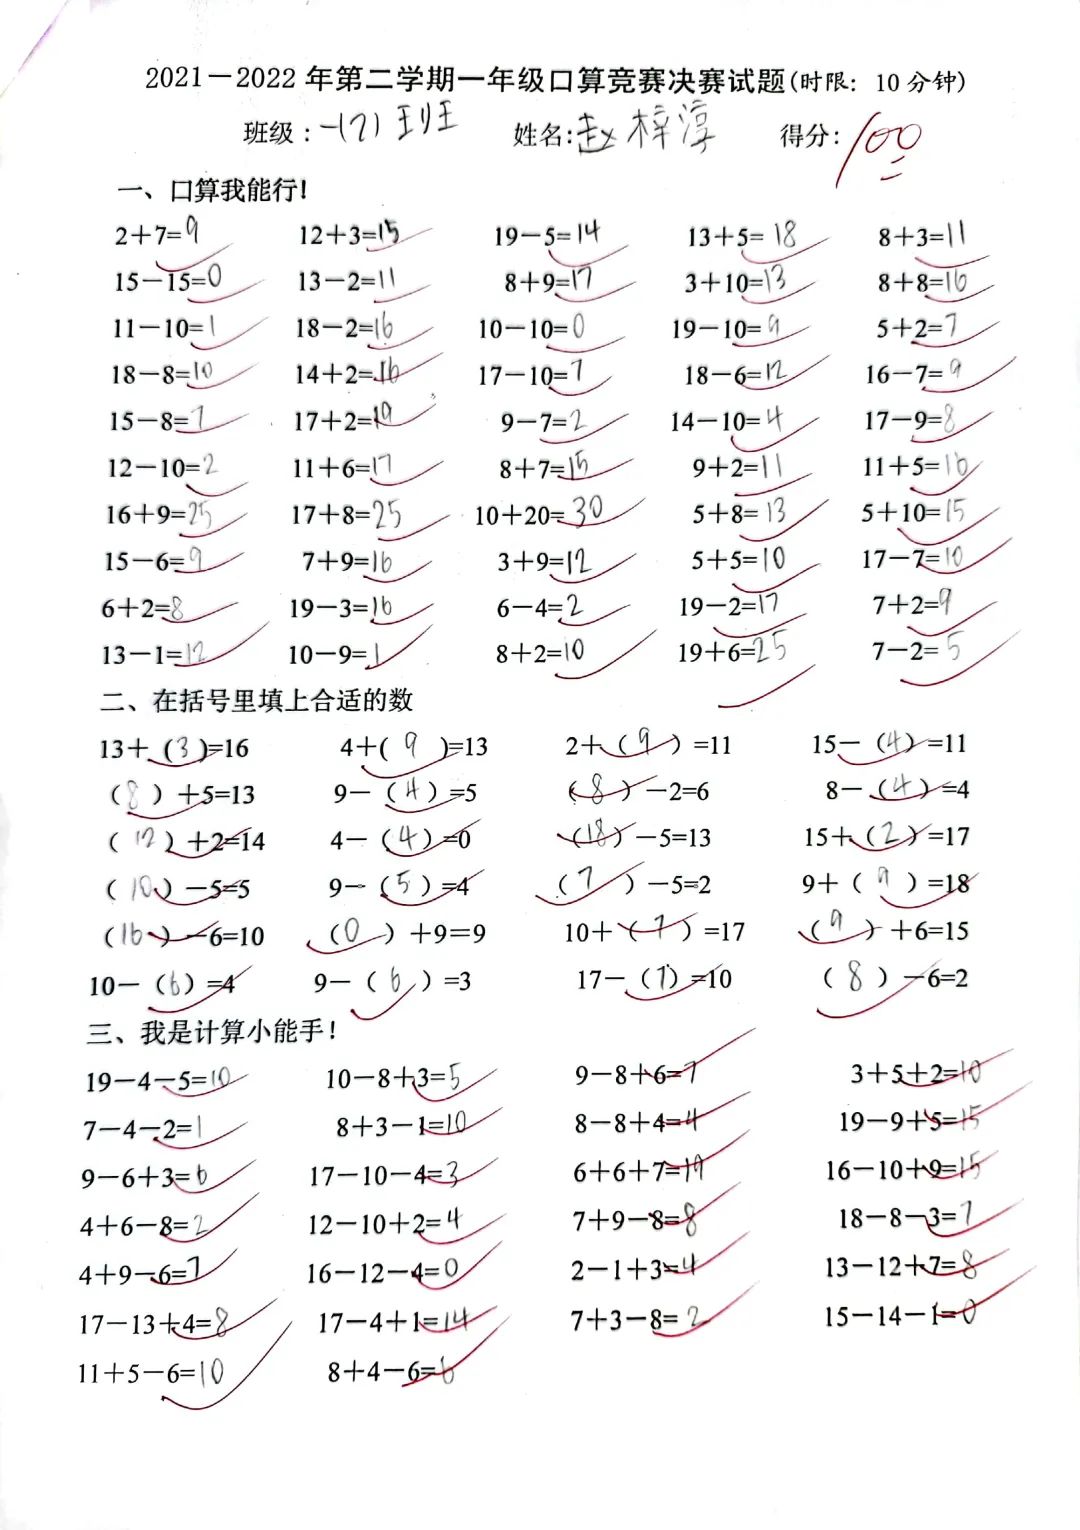 2021－2022 年第二学期一年级口算竞赛决赛试题(时限: 10 分钟)
班级:一(7)班 姓名:赵梓淳 得分:100
一、口算我能行!
2＋7=9 12＋3=15 19－5=14 13＋5=18 8＋3=11
15－15=0 13－2=11 8＋9=17 3＋10=13 8＋8=16
11－10=1 18－2=16 10－10=0 19－10=9 5＋2=7
18－8=10 14＋2=16 17－10=7 18－6=12 16－7=9
15－8=7 17＋2=19 9－7=2 14－10=4 17－9=8
12－10=2 11＋6=17 8＋7=15 9＋2=11 11＋5=16
16＋9=25 17＋8=25 10＋20=30 5＋8=13 5＋10=15
15－6=9 7＋9=16 3＋9=12 5＋5=10 17－7=10
6＋2=8 19－3=16 6－4=2 19－2=17 7＋2=9
13－1=12 10－9=1 8＋2=10 19＋6=25 7－2=5
二、在括号里填上合适的数
13＋(3)=16 4＋(9)=13 2＋(9)=11 15－(4)=11
(8)＋5=13 9－(4)=5 (8)－2=6 8－(4)=4
(12)＋2=14 4－(4)=0 (18)－5=13 15＋(2)=17
(10)－5=5 9－(5)=4 (7)－5=2 9＋(9)=18
(16)－6=10 (0)＋9=9 10＋(7)=17 (9)＋6=15
10－(6)=4 9－(6)=3 17－(7)=10 (8)－6=2
三、我是计算小能手!
19－4－5=10 10－8＋3=5 9－8＋6=7 3＋5＋2=10
7－4－2=1 8＋3－1=10 8－8＋4=4 19－9＋5=15
9－6＋3=6 17－10－4=3 6＋6＋7=19 16－10＋9=15
4＋6－8=2 12－10＋2=4 7＋9－8=8 18－8－3=7
4＋9－6=7 16－12－4=0 2－1＋3=4 13－12＋7=8
17－13＋4=8 17－4＋1=14 7＋3－8=2 15－14－1=0
11＋5－6=10 8＋4－6=6